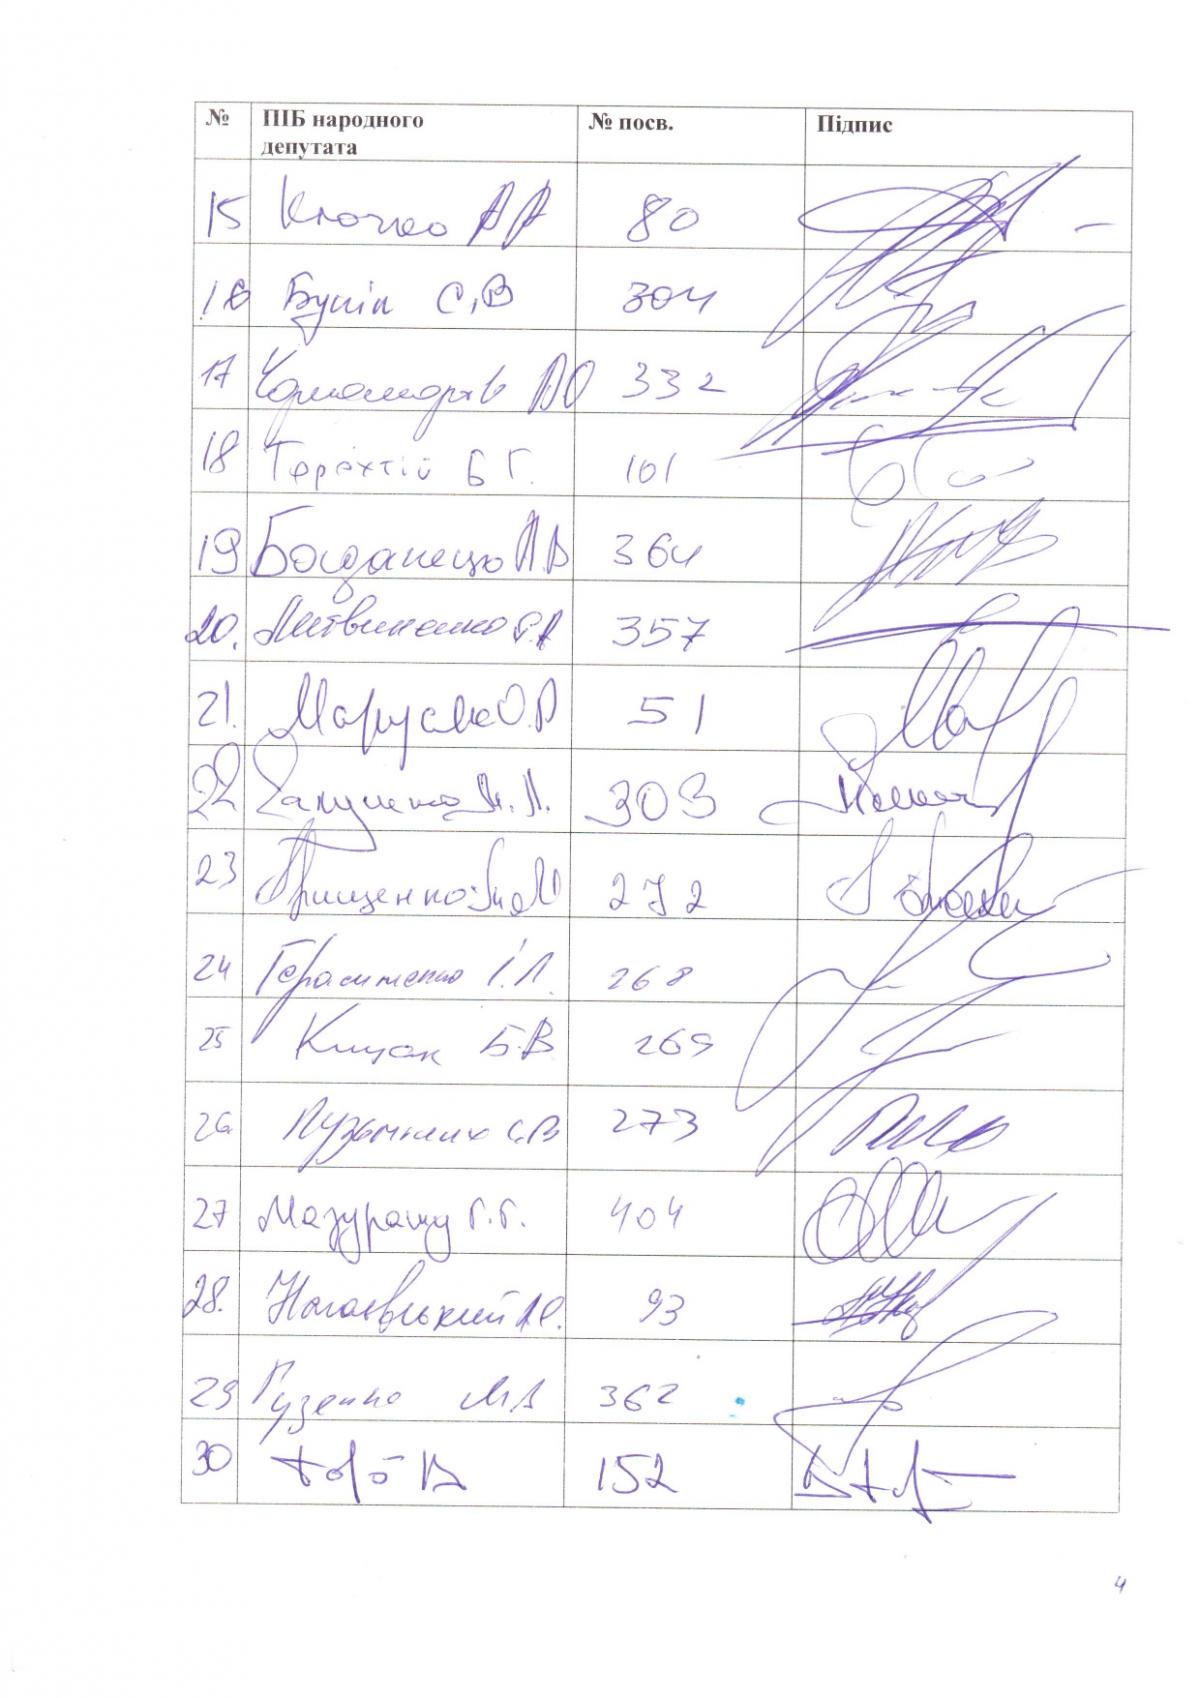 № ПІБ народного депутата № посв. Підпис
15 Клочко А А 80
16 Бунін С,В 304
17 Чорноморів АО 332
18 Торохтій Б Г. 101
19 Богданець А.В 364
20. Литвиненко С.А 357
21. Марусяк О.Р 51
22 Галушко М.Л. 309
23 Грищенко Т.М 272
24 Герасименко І.Л. 268
25 Кицак Б.В 269
26 Кузьміних С.В 273
27 Мазурашу Г.Г. 404
28. Нагаєвський А.С. 93
29 Гузенко М В 362
30 152
4